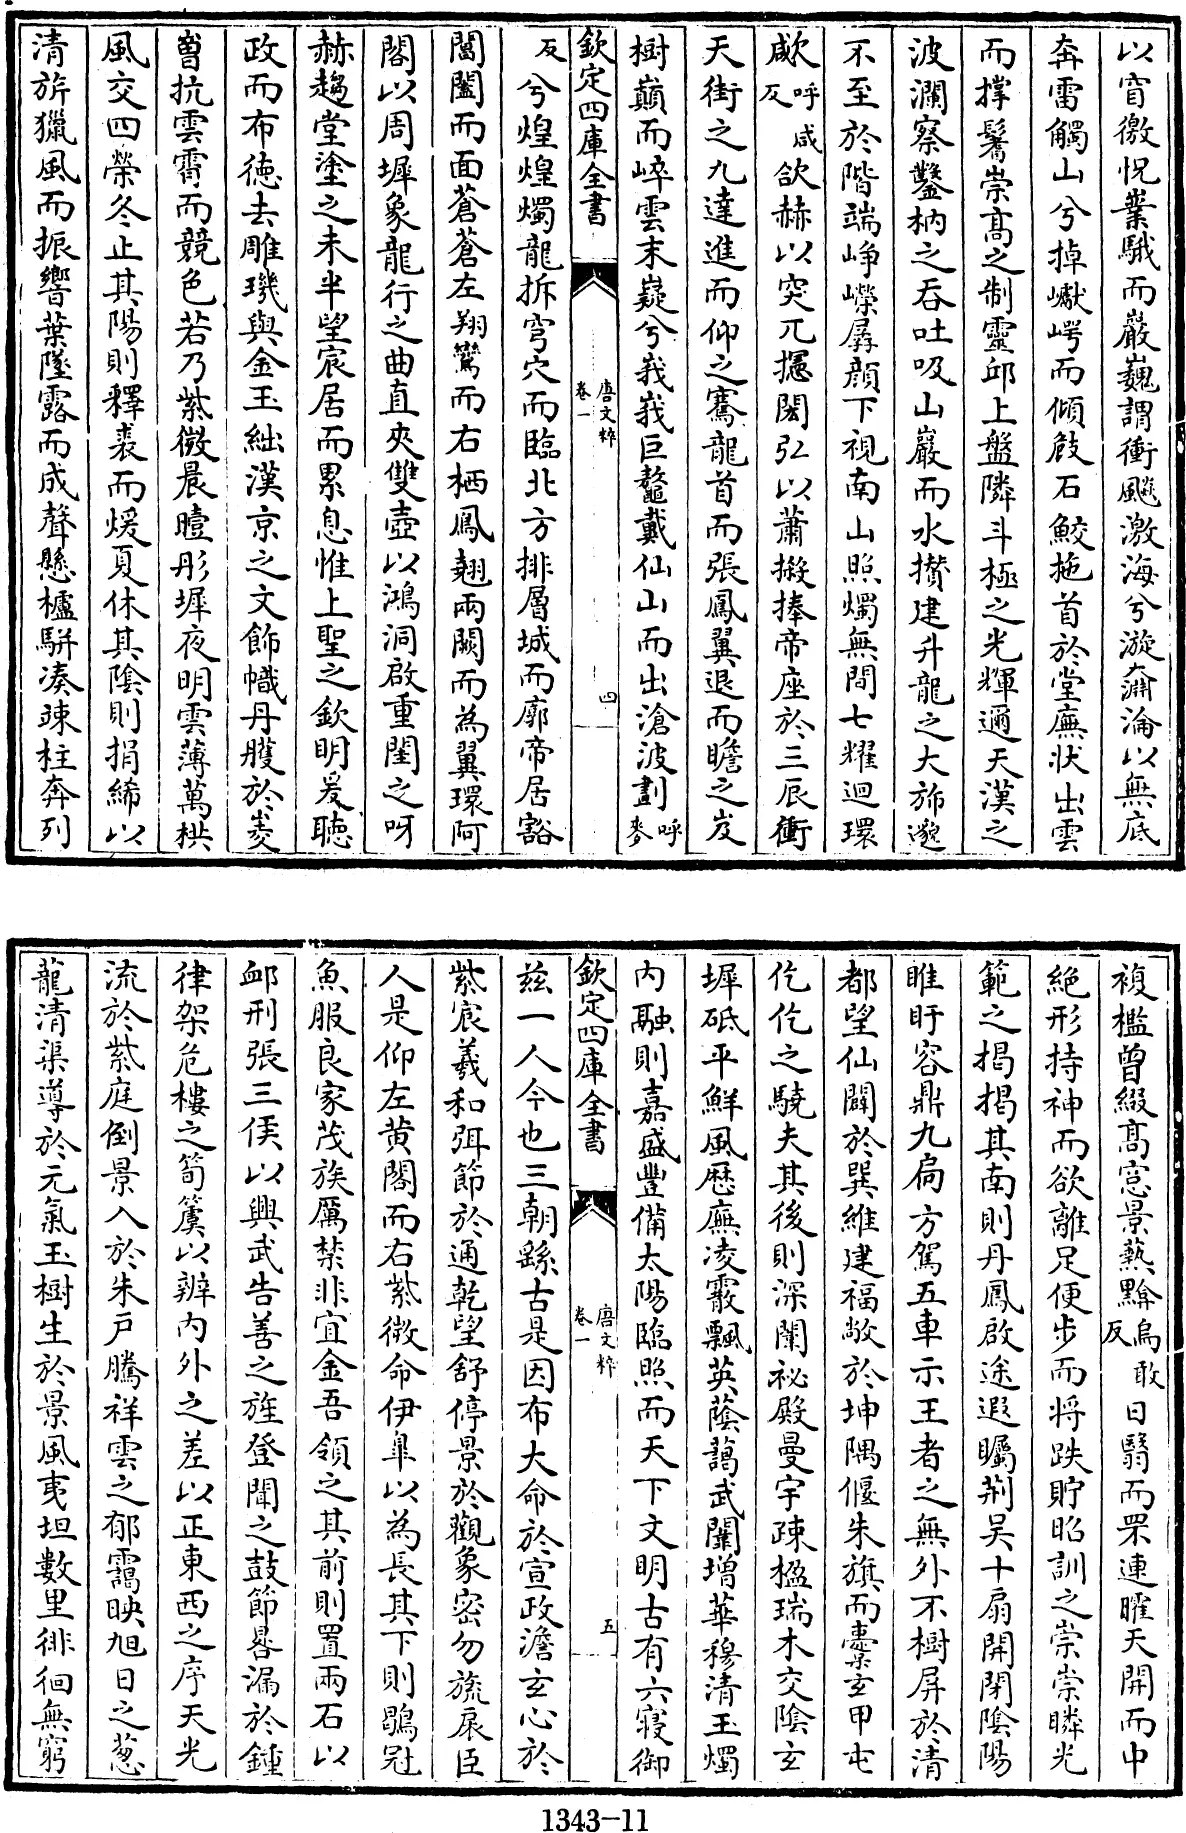 以窅徼怳業駊而巖巍謂衝飈激海兮漩奫淪以無底
奔雷觸山兮掉巘崿而傾攲石鮫拖首於堂廡狀出雲
而撑鬐崇高之制靈邱上盤隣斗極之光輝邇天漢之
波瀾察鑿枘之吞吐吸山巖而水攅建升龍之大旆邈
不至於階端崢嶸孱顔下視南山照燭無間七耀迴環
歘呼咸反欲赫以突兀攄閎弘以蕭𢷤捧帝座於三辰衝
天街之九達進而仰之騫龍首而張鳳翼退而瞻之岌
樹巔而崪雲末嶷兮峩峩巨鼇戴仙山而出滄波劃呼麥
欽定四庫全書
唐文粹
卷一
四
反兮煌煌燭龍拆穹穴而臨北方排層城而廓帝居豁
閶闔而面蒼蒼左翔鸞而右栖鳳翹兩闕而為翼環阿
閣以周墀象龍行之曲直夾雙壺以鴻洞啟重闈之呀
赫趨堂塗之未半望宸居而累息惟上聖之欽明爰聴
政而布徳去雕璣與金玉絀漢京之文飾幟丹雘於菱
曽抗雲霄而競色若乃紫微晨曀彤墀夜明雲薄萬栱
風交四榮冬止其陽則釋裘而煖夏休其隂則捐絺以
清旂獵風而振響葉墜露而成聲懸櫨駢湊竦柱奔列
複檻曾綴髙窓景爇黭烏敢反日翳而罘連曜天開而中
絶形持神而欲離足便步而將跌貯昭訓之崇崇疄光
範之揭揭其南則丹鳳啟途遐矚荆吴十扇開閉隂陽
睢盱容鼎九扃方駕五車示王者之無外不樹屏於清
都望仙闢於巽維建福敞於坤隅偃朱旗而櫜玄甲屯
仡仡之驍夫其後則深闈祕殿曼宇疎楹瑞木交陰玄
墀砥平鮮風歴廡凌霰飄英蔭藹武闈增華穆清王燭
内融則嘉盛豐備太陽臨照而天下文明古有六寢御
欽定四庫全書
唐文粹
卷一
五
兹一人今也三朝繇古是因布大命於宣政澹玄心於
紫宸羲和弭節於通乾望舒停景於觀象密勿旒扆臣
人是仰左黄閣而右紫微命伊臯以為長其下則鶡冠
魚服良家茂族厲禁非宜金吾領之其前則置兩石以
䘏刑張三侯以興武告善之旌登聞之鼓節晷漏於鍾
律架危樓之筍簴以辨内外之差以正東西之序天光
流於紫庭倒景入於朱戸騰祥雲之郁靄映旭日之蔥
蘢清渠導於元氣玉樹生於景風夷坦數里徘徊無窮
1343-11